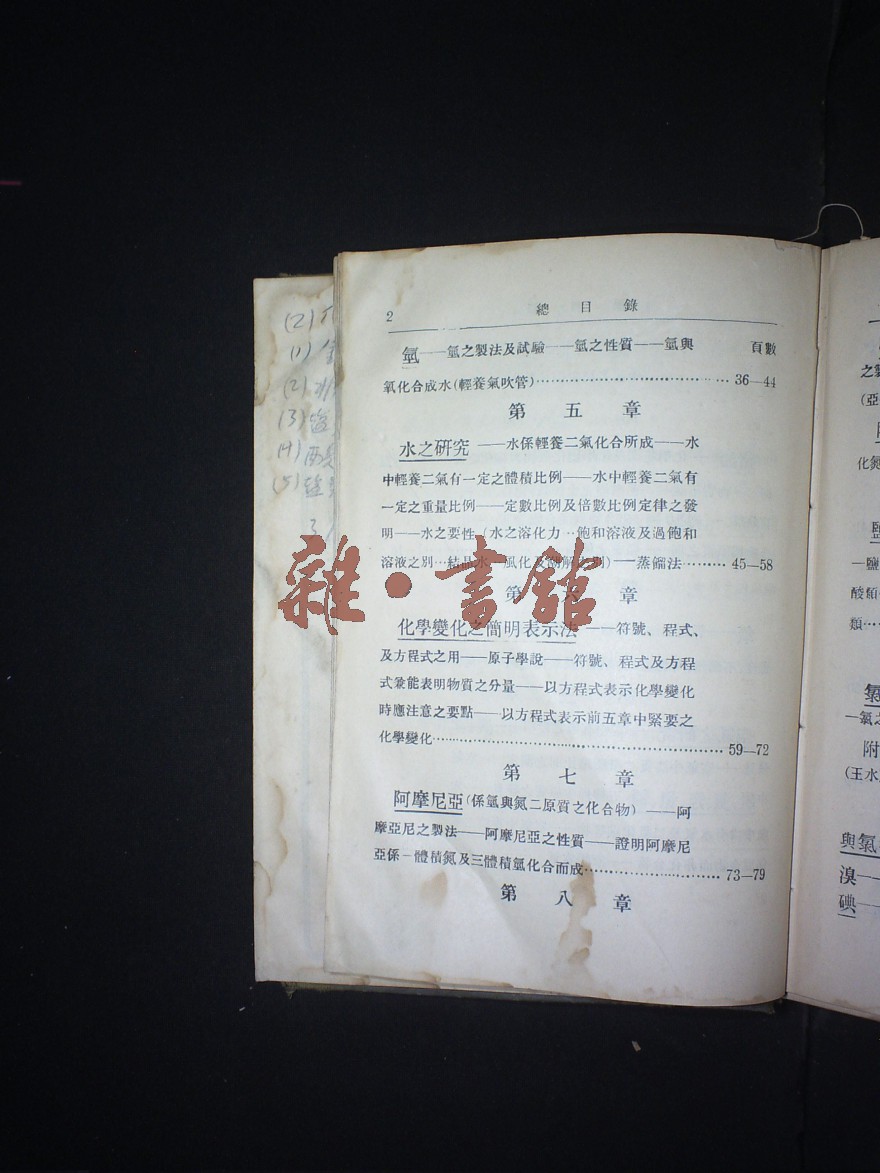 2 總目錄
氫——氫之製法及試驗——氫之性質——氫與 頁數
氧化合成水(輕養氣吹管)⋯⋯ 36—44
第五章
水之研究——水係輕養二氣化合所成——水
中輕養二氣有一定之體積比例——水中輕養二氣有
一定之重量比例——定數比例及倍數比例定律之發
明——水之要性(水之溶化力⋯飽和溶液及過飽和
溶液之別⋯結晶水⋯風化及潮解之別)——蒸餾法⋯⋯ 45—58
第六章
化學變化之簡明表示法——符號、程式、
及方程式之用——原子學說——符號、程式及方程
式兼能表明物質之分量——以方程式表示化學變化
時應注意之要點——以方程式表示前五章中緊要之
化學變化⋯⋯ 59—72
第七章
阿摩尼亞(係氫與氮二原質之化合物)——阿
摩亞尼之製法——阿摩尼亞之性質——證明阿摩尼
亞係一體積氮及三體積氫化合而成⋯⋯ 73—79
第八章
雜·書館
(2)
(1)
(2) 水
(3) 鹽
(4)
(5) 鹽
之製
(亞
化氮
鹽
—鹽
酸類
類⋯
附
(王水
與氯
溴—
碘—